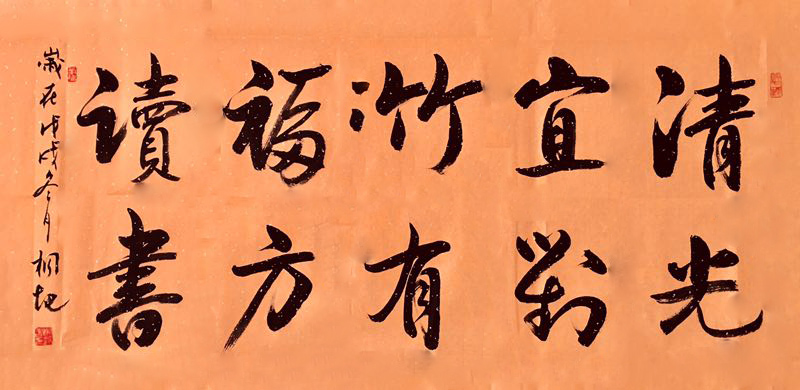 清光
宜對
竹有
福方
讀書
歲在戊戌冬月